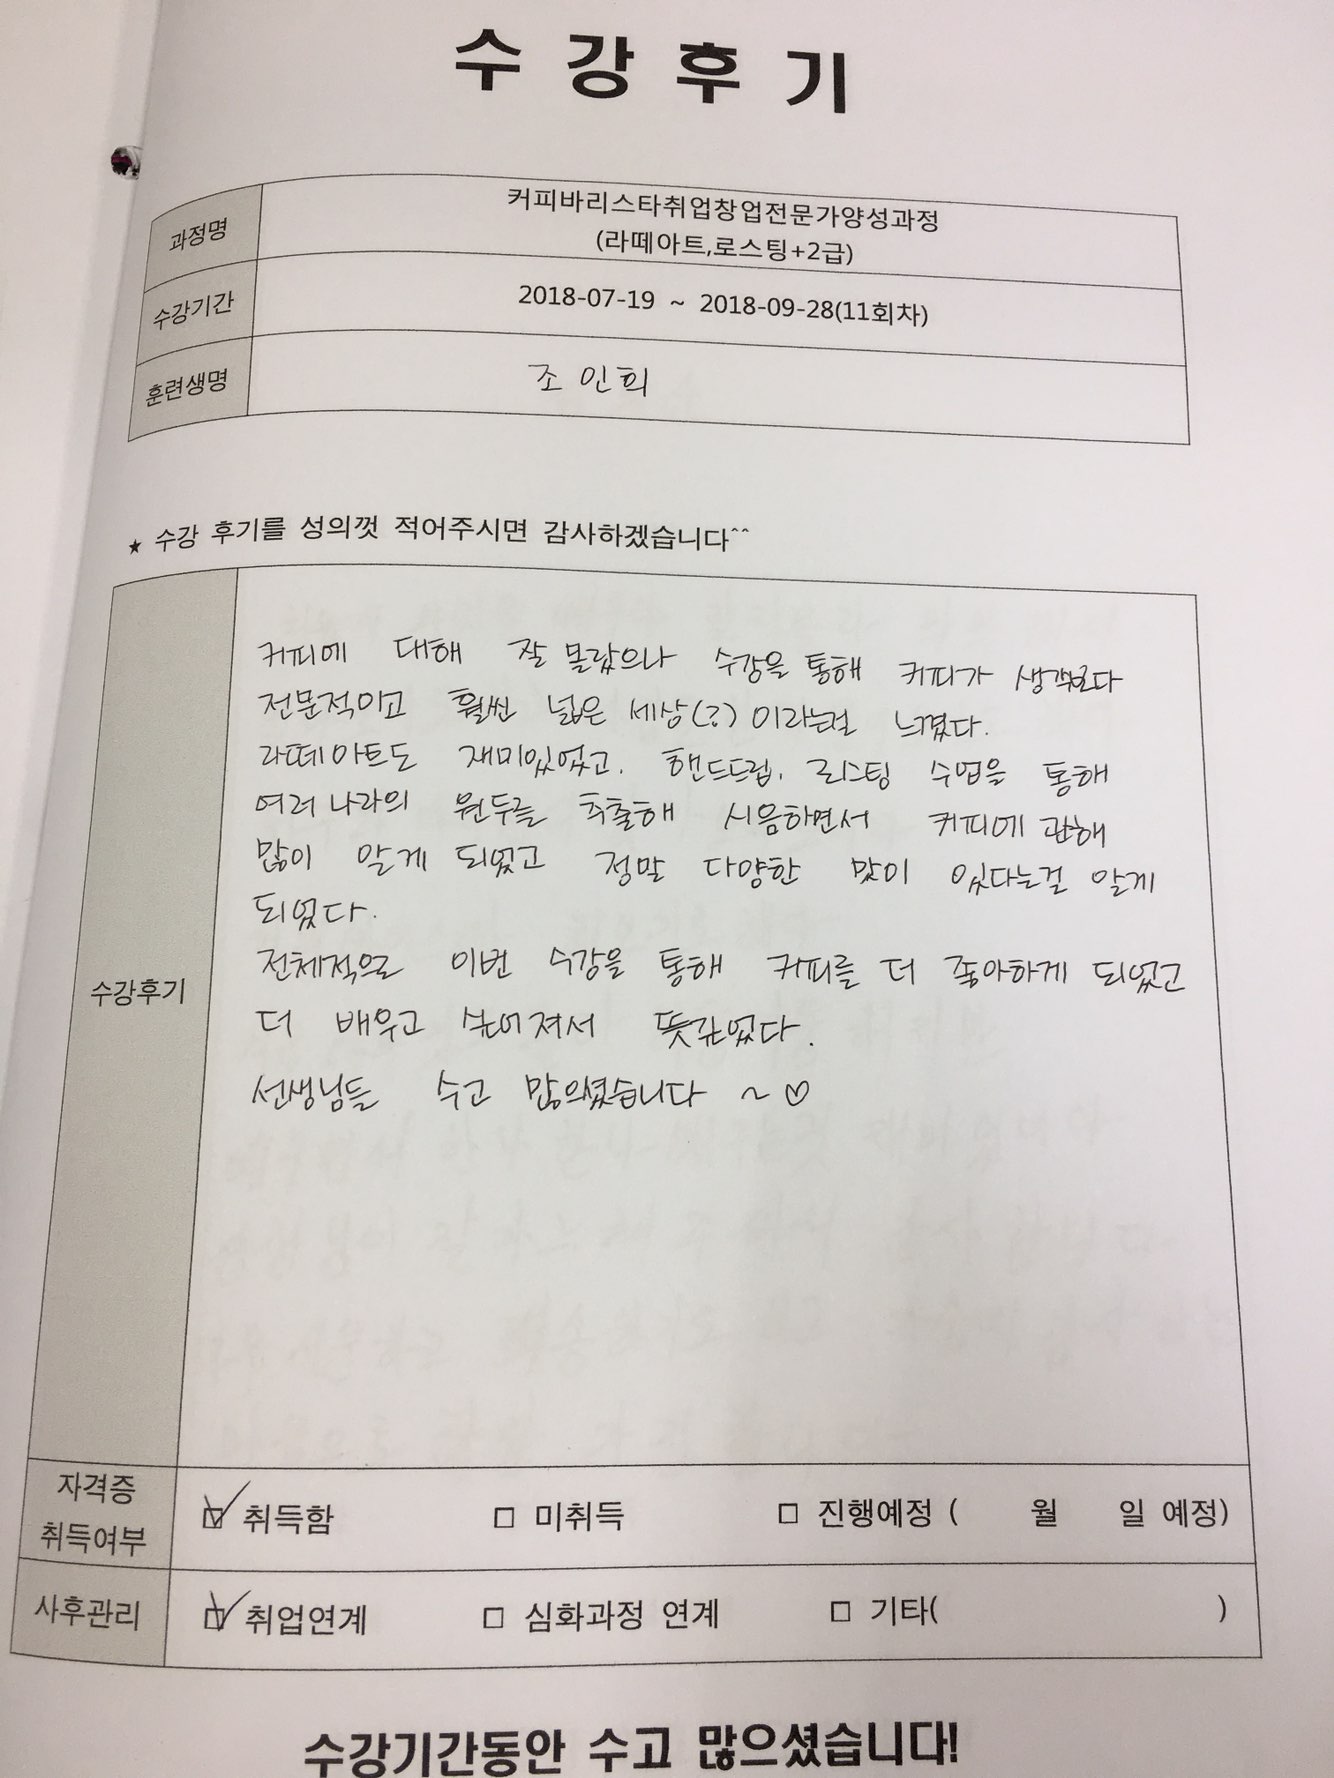 수강후기
과정명
커피바리스타취업창업전문가양성과정
(라떼아트,로스팅+2급)
수강기간
2018-07-19 ~ 2018-09-28(11회차)
훈련생명
조인희
★ 수강 후기를 성의껏 적어주시면 감사하겠습니다^^
수강후기
커피에 대해 잘 몰랐으나 수강을 통해 커피가 생각보다
전문적이고 훨씬 넓은 세상(?)이라는걸 느꼈다.
라떼아트도 재미있었고, 핸드드립, 로스팅 수업을 통해
여러나라의 원두를 추출해 시음하면서 커피에 관해
많이 알게 되었고 정말 다양한 맛이 있다는걸 알게
되었다.
전체적으로 이번 수강을 통해 커피를 더 좋아하게 되었고
더 배우고 싶어져서 뜻깊었다.
선생님들 수고 많으셨습니다 ~♡
자격증
취득여부
☑ 취득함 □ 미취득 □ 진행예정 ( 월 일 예정)
사후관리
☑ 취업연계 □ 심화과정 연계 □ 기타( )
수강기간동안 수고 많으셨습니다!